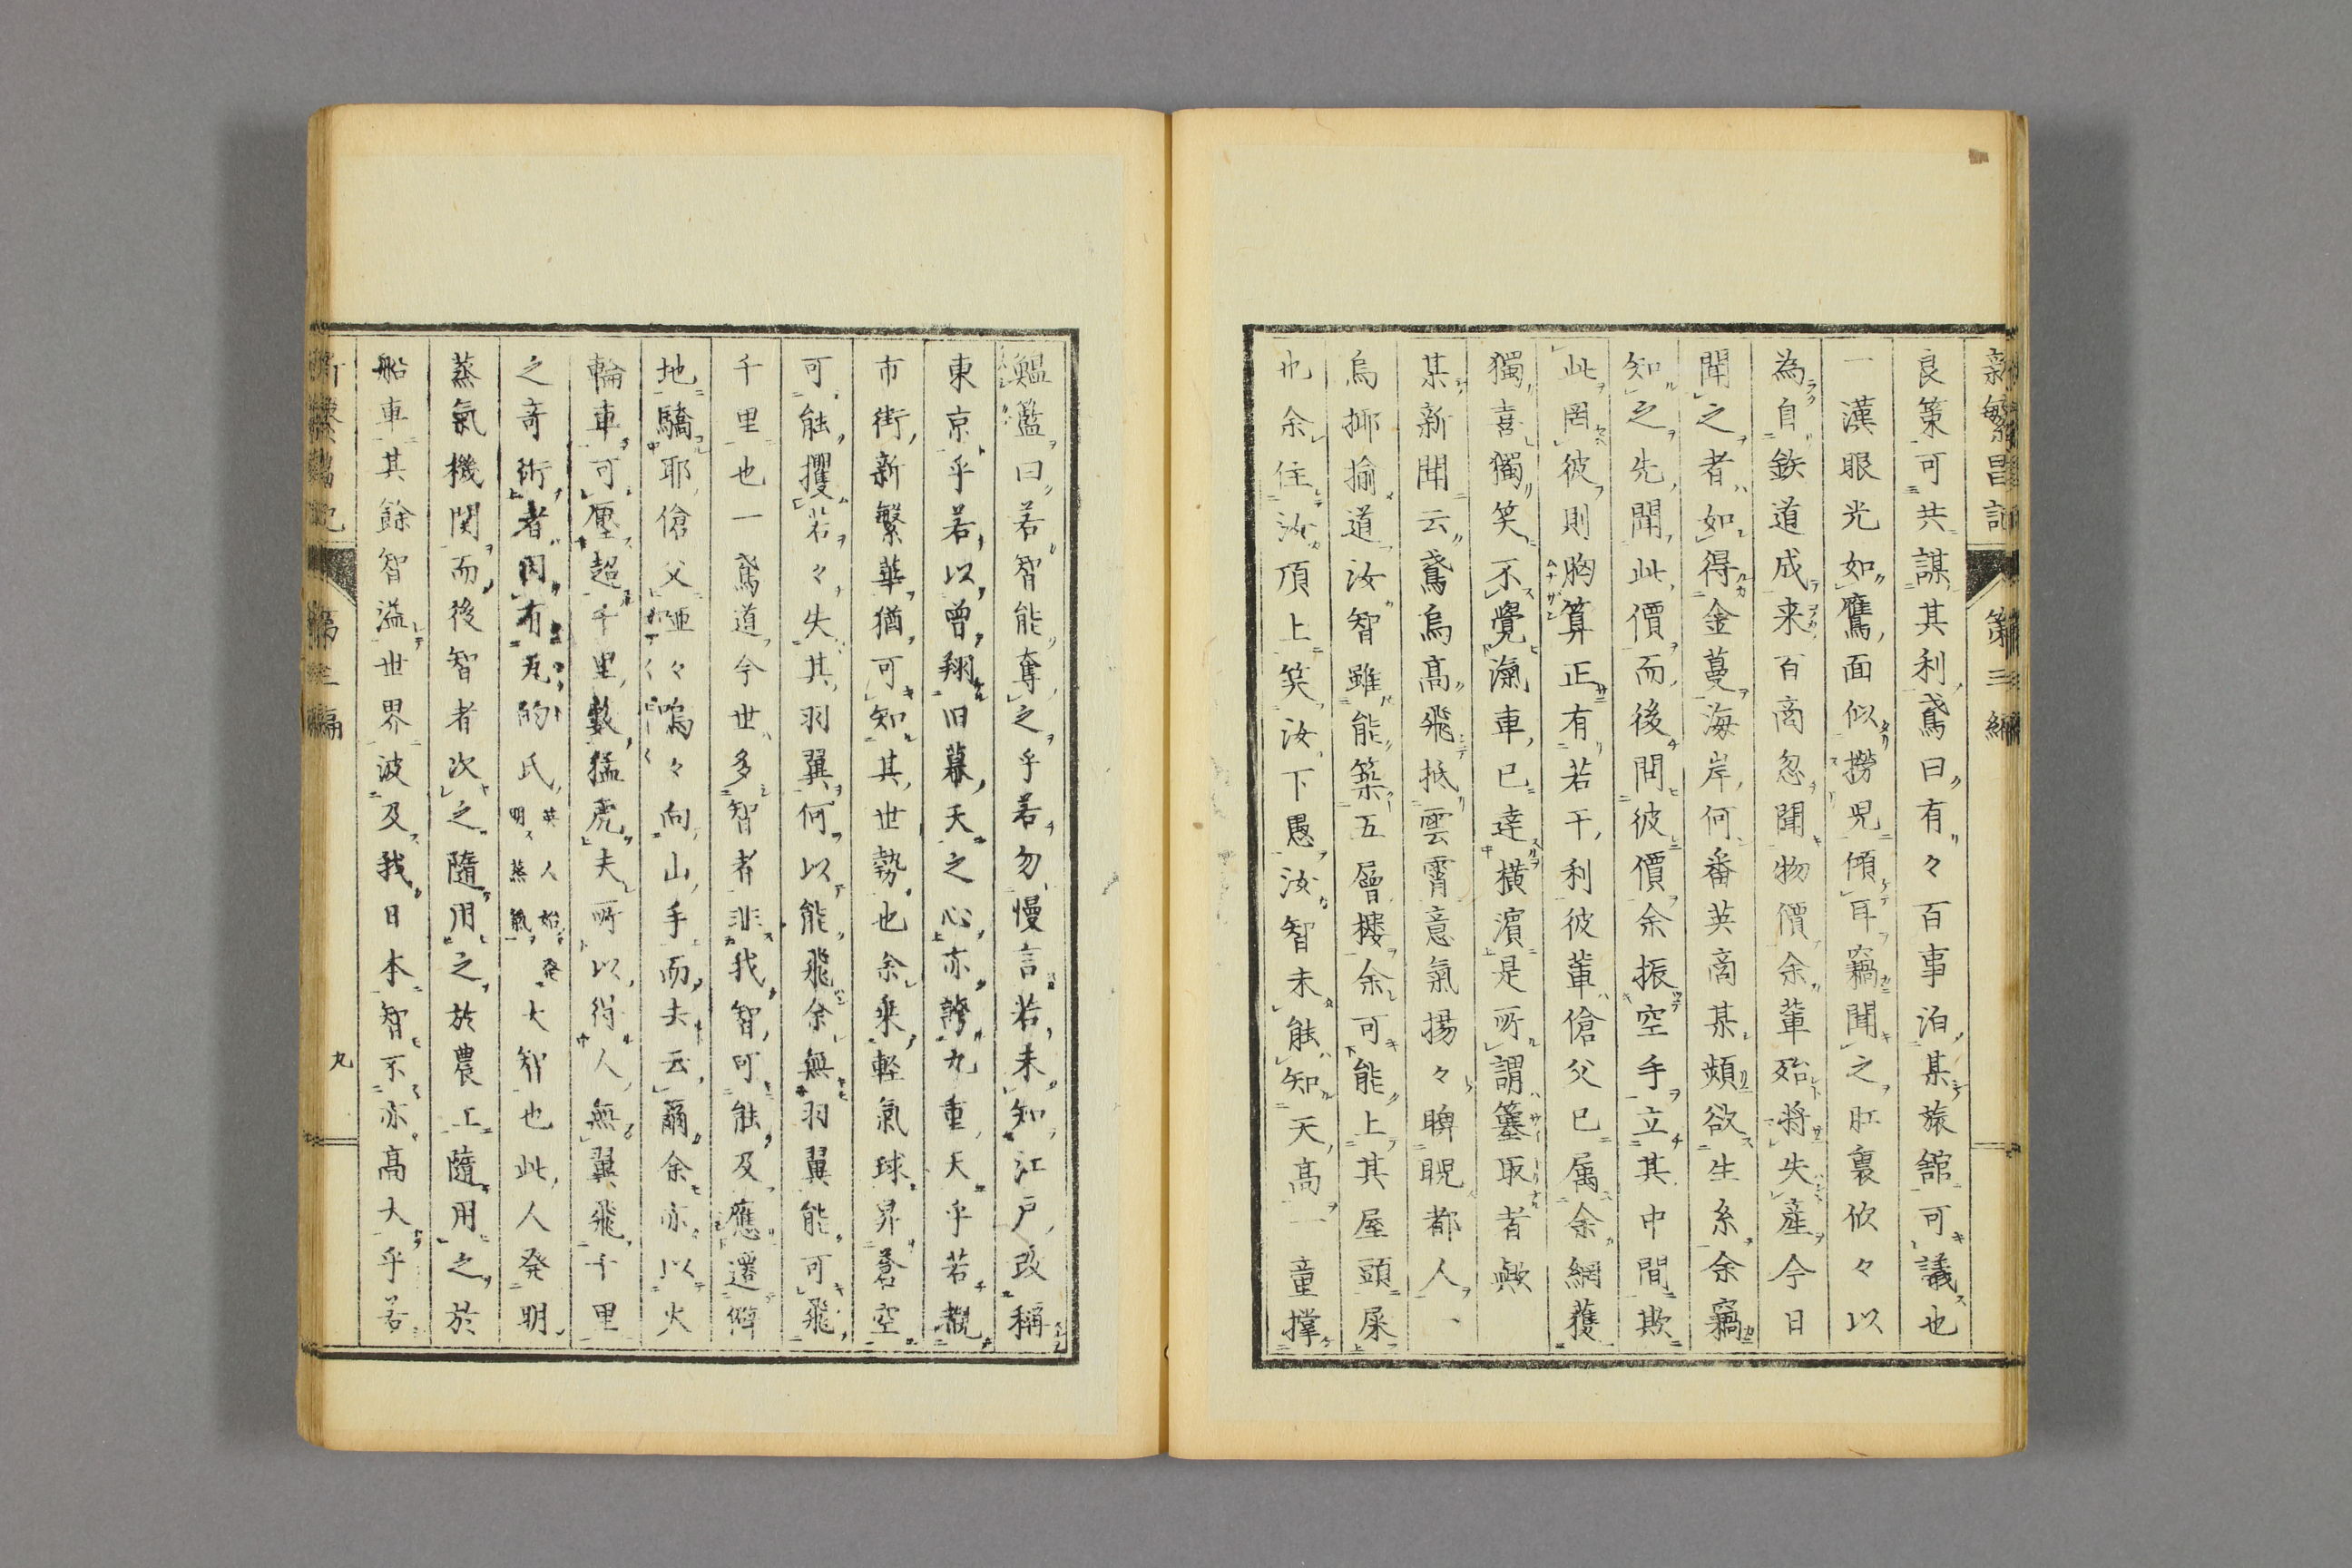 新繁昌記 第三編
良策可共謀其利鳶曰有々百事泊某旅舘可議也
一漢眼光如鷹面似撈児傾耳竊聞之肚裏佽々以
為自鉄道成来百商忽聞物價余輩殆將失産今日
聞之者如得金蔓海岸何番英商某頻欲生糸余竊
知之先聞此價而後問彼價余振空手立其中間欺
此罔彼則胸算正有若干利彼輩傖父已属余網蒦
獨喜獨笑不覺滊車已達横濵是所謂簺取者歟
某新聞云鳶烏髙飛抵雲霄意氣揚々睥睨都人、
烏揶揄道汝智雖能築五層樓余可能上其屋頭屎
也余住汝頂上笑汝下愚汝智未能知天髙一童撑
鰛籃曰若智能奪之乎若勿慢言若未知江戸改稱
東京乎若以曽翔旧幕天之心亦誇九重天乎若覩
市街新繁華猶可知其世勢也余乗軽氣球昇蒼空
可能攫若々失其羽翼何以能飛余無羽翼能可飛
千里也一鳶道今世多智者非我智可能及應遷僻
地驕耶傖父唖々鳴々向山手而去云爾余亦以火
輪車可壓超千里數猛虎夫所以得人無翼飛千里
之竒術者因有瓦的氏英人始発明蒸氣大智也此人発明
蒸氣機関而後智者次之隨用之於農工隨用之於
船車其餘智溢世界波及我日本智不亦髙大乎若
新繁昌記 第三編 九